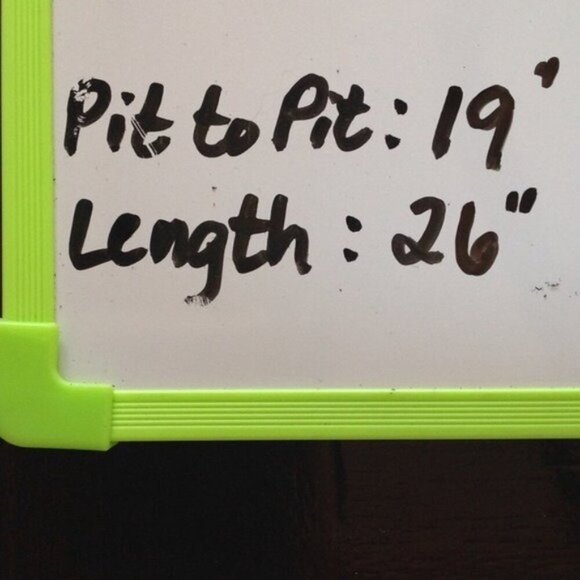 Pit to Pit: 19"
Length: 26"